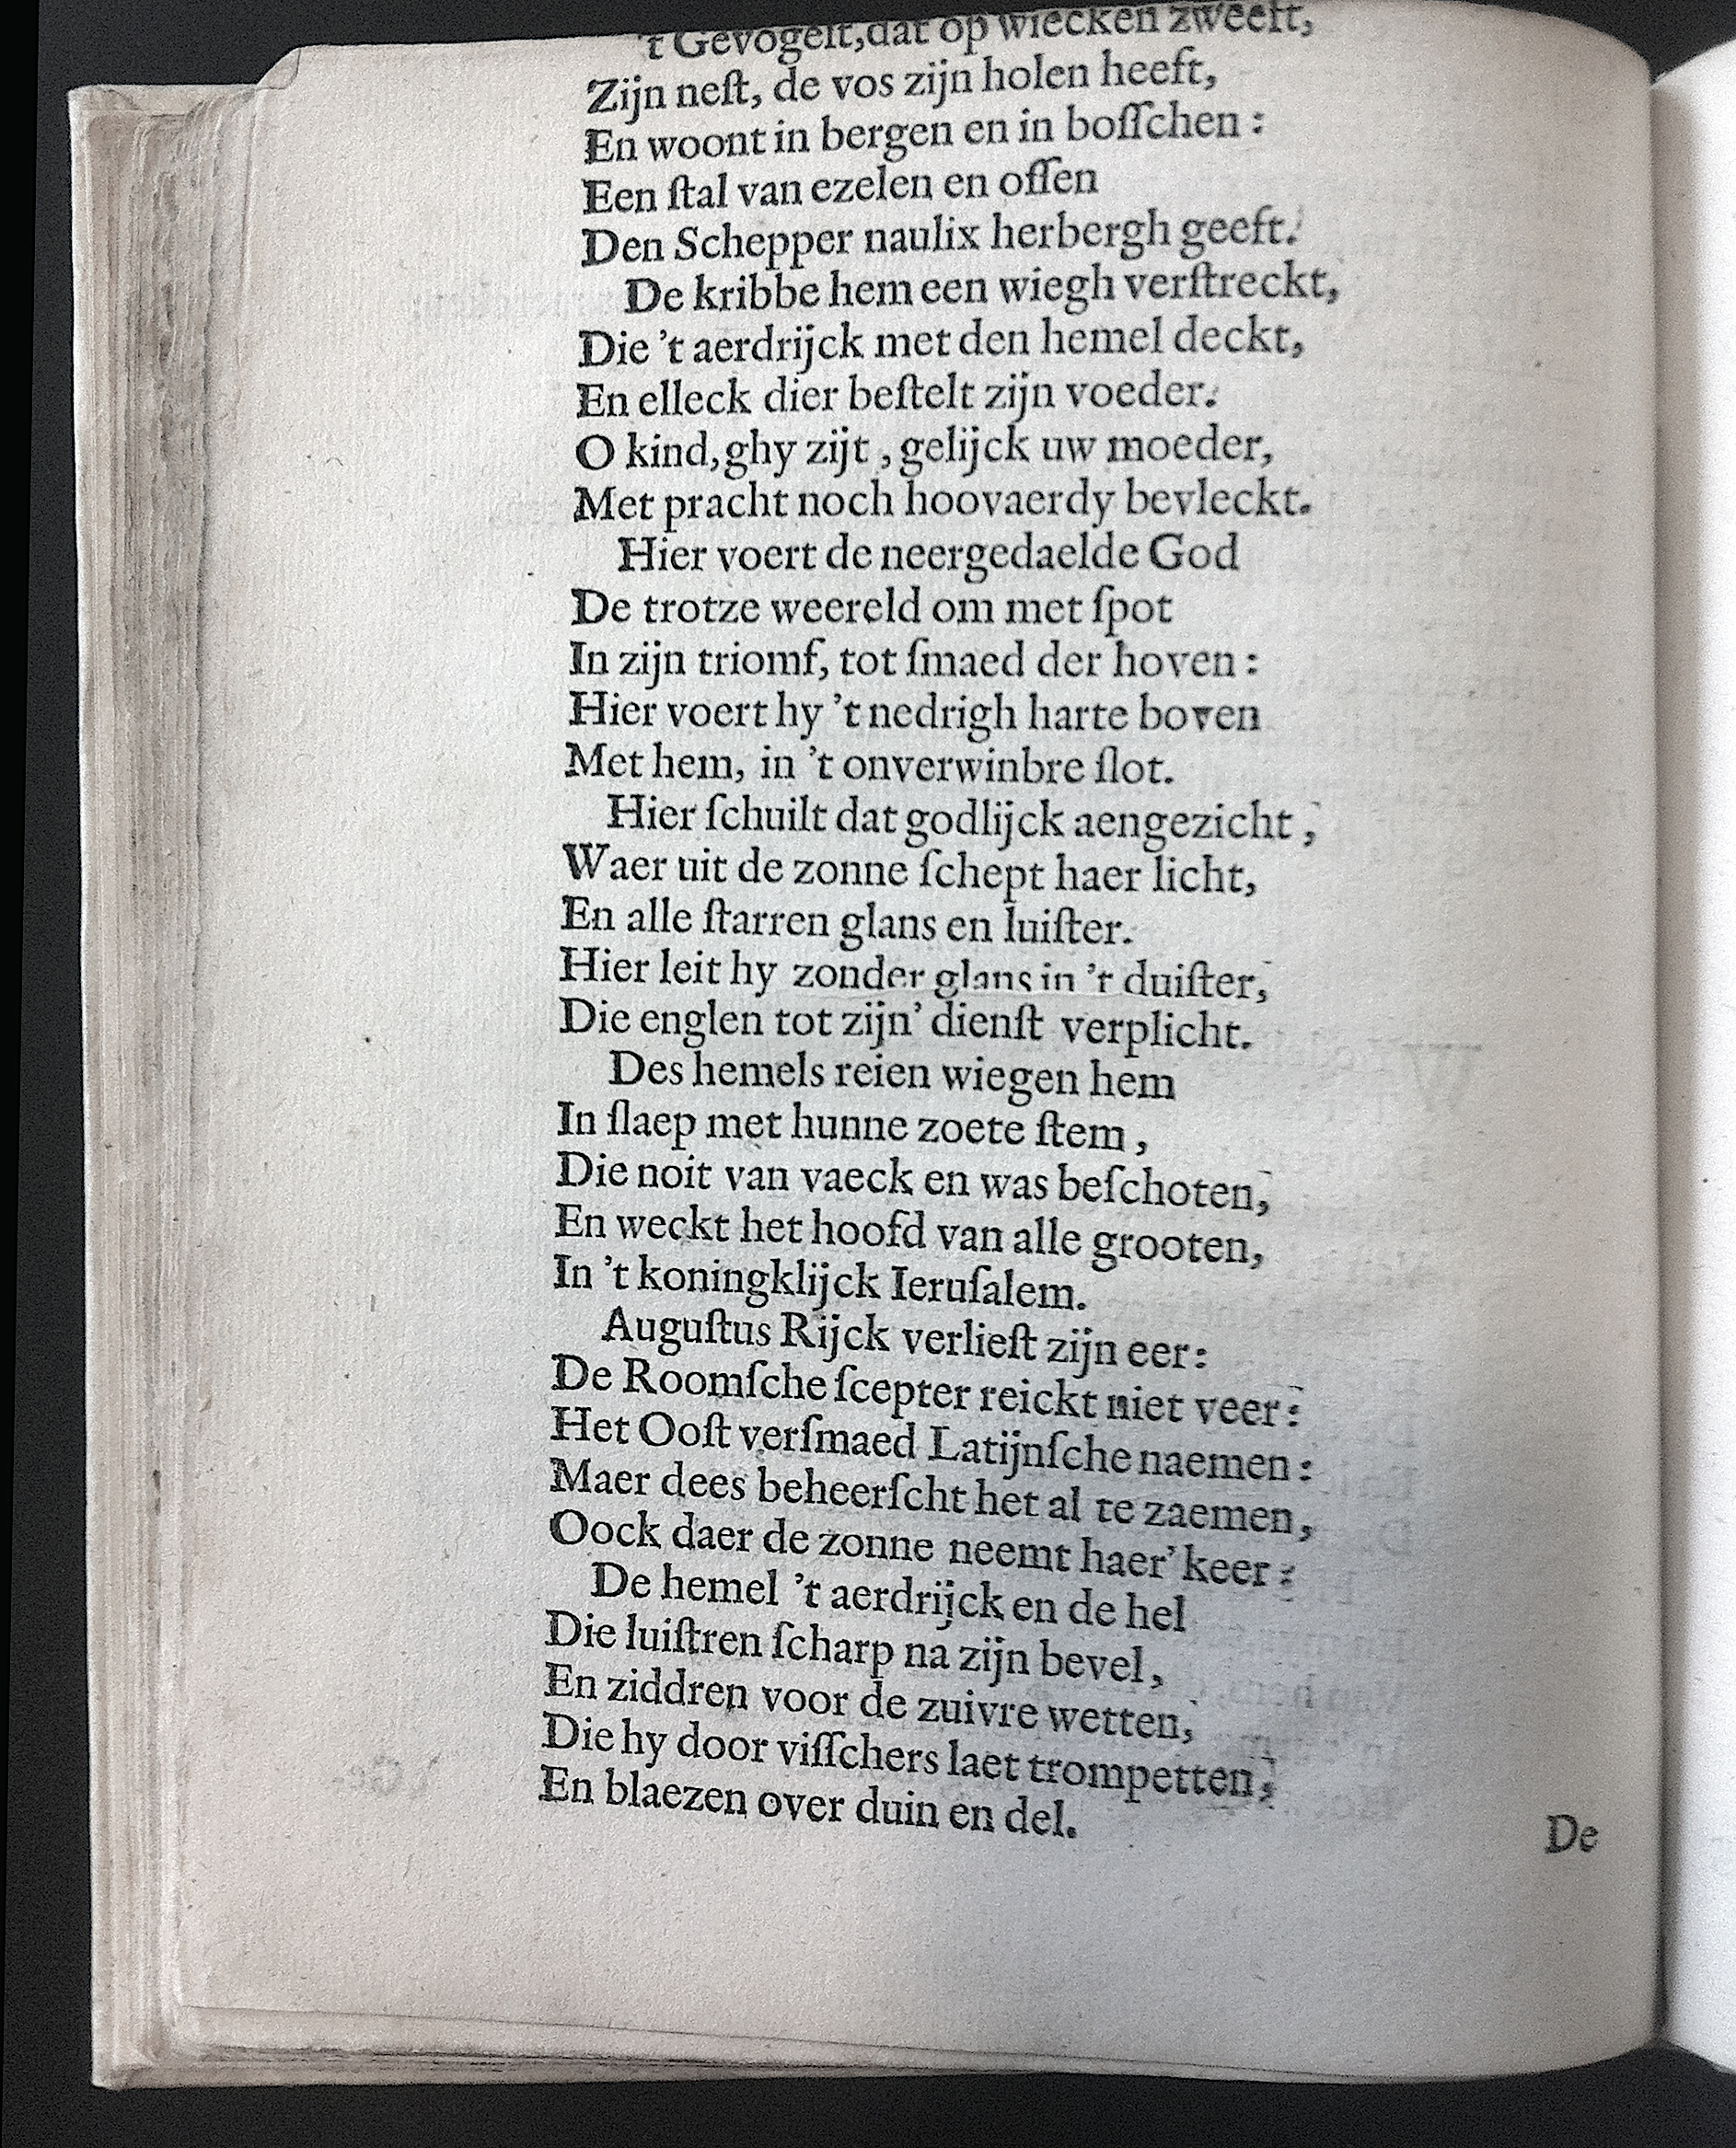 't Gevogelt,dat op wiecken zweeft,
Zijn neſt, de vos zijn holen heeft,
En woont in bergen en in boſſchen :
Een ſtal van ezelen en oſſen
Den Schepper naulix herbergh geeft.
De kribbe hem een wiegh verſtreckt,
Die 't aerdrijck met den hemel deckt,
En elleck dier beſtelt zijn voeder.
O kind,ghy zijt , gelijck uw moeder,
Met pracht noch hoovaerdy bevleckt.
Hier voert de neergedaelde God
De trotze weereld om met ſpot
In zijn triomf, tot ſmaed der hoven :
Hier voert hy 't nedrigh harte boven
Met hem, in 't onverwinbre ſlot.
Hier ſchuilt dat godlijck aengezicht ,
Waer uit de zonne ſchept haer licht,
En alle ſtarren glans en luiſter.
Hier leit hy zonder glans in 't duiſter,
Die englen tot zijn' dienſt verplicht.
Des hemels reien wiegen hem
In ſlaep met hunne zoete ſtem ,
Die noit van vaeck en was beſchoten,
En weckt het hoofd van alle grooten,
In 't koningklijck Ieruſalem.
Auguſtus Rijck verlieſt zijn eer:
De Roomſche ſcepter reickt niet veer:
Het Ooſt verſmaed Latijnſche naemen :
Maer dees beheerſcht het al te zaemen,
Oock daer de zonne neemt haer' keer :
De hemel 't aerdrijck en de hel
Die luiſtren ſcharp na zijn bevel,
En ziddren voor de zuivre wetten,
Die hy door viſſchers laet trompetten,
En blaezen over duin en del.
De